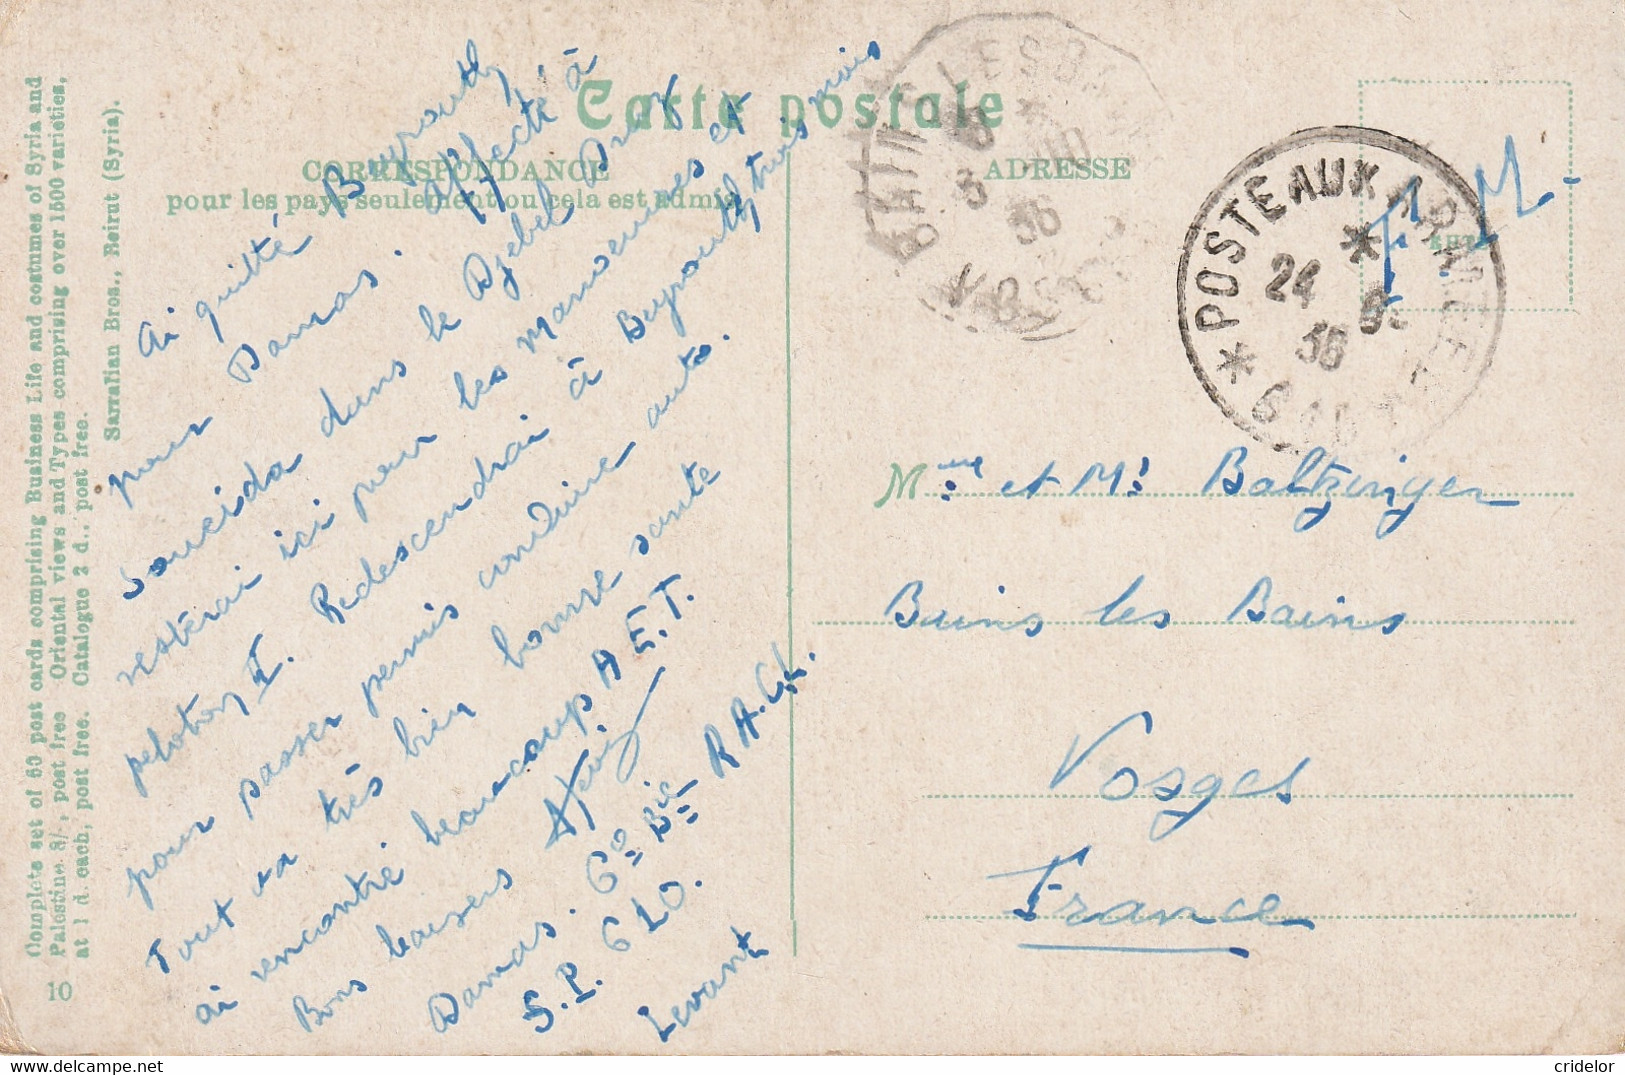 Complete set of 60 post cards comprising Business Life and costumes of Syria and
Palestine 8/-, post free Oriental views and Types comprising over 1500 varieties,
at 1 d. each, post free. Catalogue 2 d., post free.
Sarrafian Bros., Beirut (Syria).
10
Carte postale
CORRESPONDANCE
pour les pays seulement ou cela est admis
ADRESSE
Ai quitté Beyrouth
pour Damas. Affecté à
Soueida dans le Djebel Druz
resterai ici pour les manoeuvres et
peloton II. Redescendrai à Beyrouth trois mois
pour passer permis conduire auto.
Tout va très bien bonne santé
ai rencontré beaucoup A E.T.
Bons baisers
Damas. 6e Bie R.A.C.L.
S.P. 610.
Levant
F. M.
POSTE AUX ARMEES
24 36
610
BAINS-LES-BAINS
36
VOSGES
Mme et Mr Baltzinger
Bains les Bains
Vosges
France
cridelor